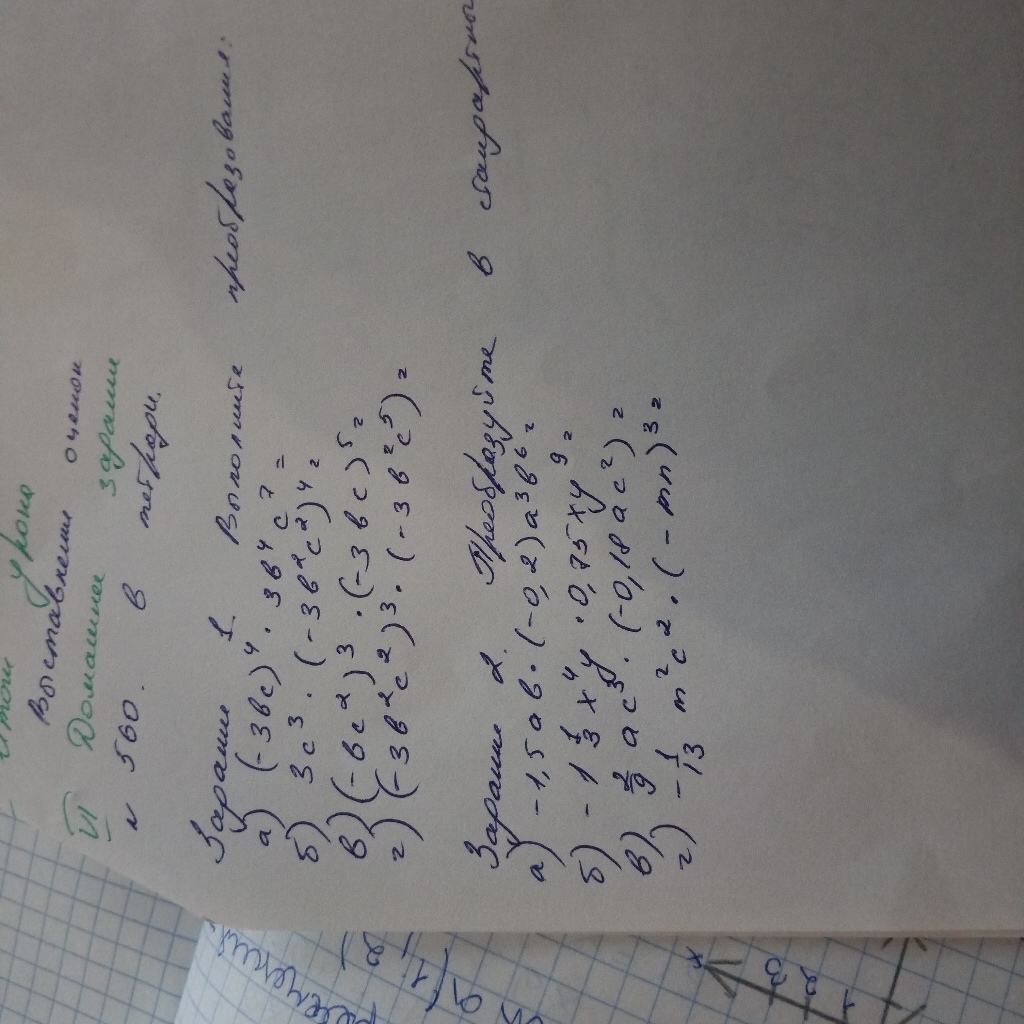 урока
Выставлении оценок
VI Домашнее задание
№ 560. в тетради.
Задание 1 Выполните преобразования:
а) (-3вс)⁴ · 3в⁴ с⁷ =
б) 3с³ · (-3в²с²)⁴ =
в) (-вс²)³ · (-3вс)⁵ =
г) (-3в²с²)³ · (-3в²с⁵) =
Задание 2. Преобразуйте в стандартны
а) -1,5ав · (-0,2)а³в⁶ =
б) -1 1/3 х⁴у · 0,75ху⁹ =
в) ас³ · (-0,18ас²) =
г) -1/13 m²c² · (-mn)³ =
х
1 2 3